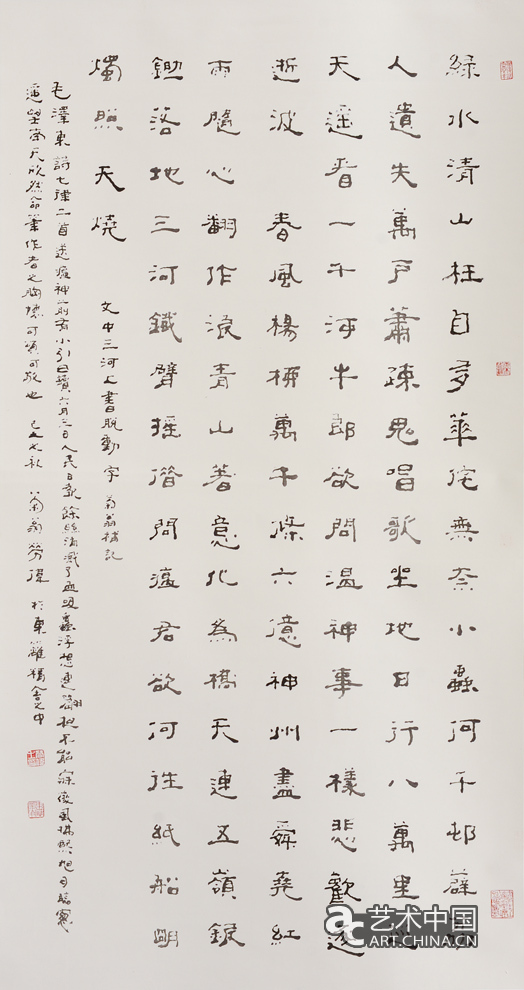 綠水清山枉自多華佗無奈小蟲何千邨薜
人遺失萬戶蕭疎鬼唱歌坐地日行八萬里巡
天遥看一千河牛郎欲問温神事一樣悲歡逐
逝波 春風楊柳萬千條六億神州盡舜堯紅
雨隨心翻作浪青山著意化為橋天連五嶺銀
鋤落地三河鐵臂搖借問瘟君欲何往紙船明
燭照天燒 文中三河上書脫動字 菊翁補記
毛澤東詩七律二首送瘟神前有小引曰讀六月三日人民日報餘消滅了血吸蟲浮想連翩夜不能寐微風拂煦旭日臨窗
遥望南天欣然命筆作者之胸懷可頌可敬也 之秋 菊翁勞 於東籬之中
艺术中国
ART.CHINA.CN